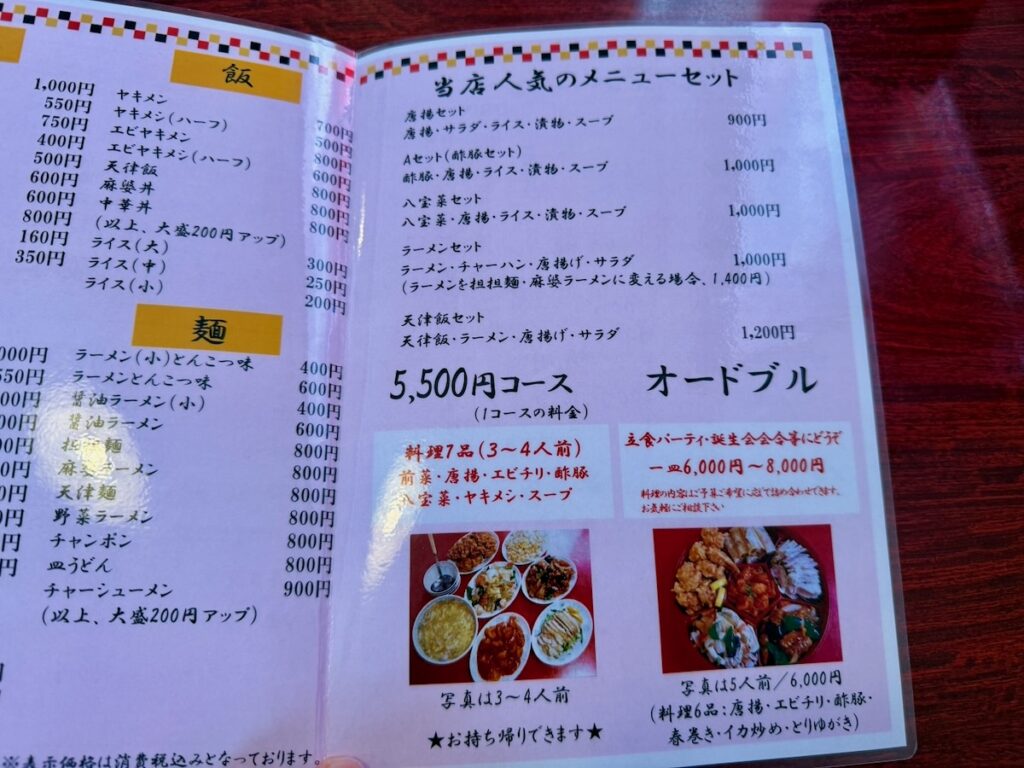 1,000円
550円
750円
400円
500円
600円
600円
800円
160円
350円
飯
ヤキメシ 700円
ヤキメシ(ハーフ) 500円
エビヤキメシ 800円
エビヤキメシ(ハーフ) 600円
天津飯 800円
麻婆丼 800円
中華丼 800円
(以上、大盛200円アップ)
ライス(大) 300円
ライス(中) 250円
ライス(小) 200円
麺
ラーメン(小)とんこつ味 400円
ラーメンとんこつ味 600円
醤油ラーメン(小) 400円
醤油ラーメン 600円
担担麺 800円
麻婆ラーメン 800円
天津麺 800円
野菜ラーメン 800円
チャンポン 800円
皿うどん 800円
チャーシューメン 900円
(以上、大盛200円アップ)
※表示価格は消費税込みとなっております。
当店人気のメニューセット
唐揚セット
唐揚・サラダ・ライス・漬物・スープ 900円
Aセット(酢豚セット)
酢豚・唐揚・ライス・漬物・スープ 1,000円
八宝菜セット
八宝菜・唐揚・ライス・漬物・スープ 1,000円
ラーメンセット
ラーメン・チャーハン・唐揚げ・サラダ 1,000円
(ラーメンを担担麺・麻婆ラーメンに変える場合、1,400円)
天津飯セット
天津飯・ラーメン・唐揚げ・サラダ 1,200円
5,500円コース
(1コースの料金)
料理7品(3〜4人前)
前菜・唐揚・エビチリ・酢豚
八宝菜・ヤキメシ・スープ
写真は3〜4人前
★お持ち帰りできます★
オードブル
立食パーティ・誕生会会合等にどうぞ
一皿6,000円〜8,000円
料理の内容はご予算ご希望に応じて詰め合わせできます。
お気軽にご相談下さい
写真は5人前/6,000円
(料理6品:唐揚・エビチリ・酢豚・
春巻き・イカ炒め・とりゆがき)